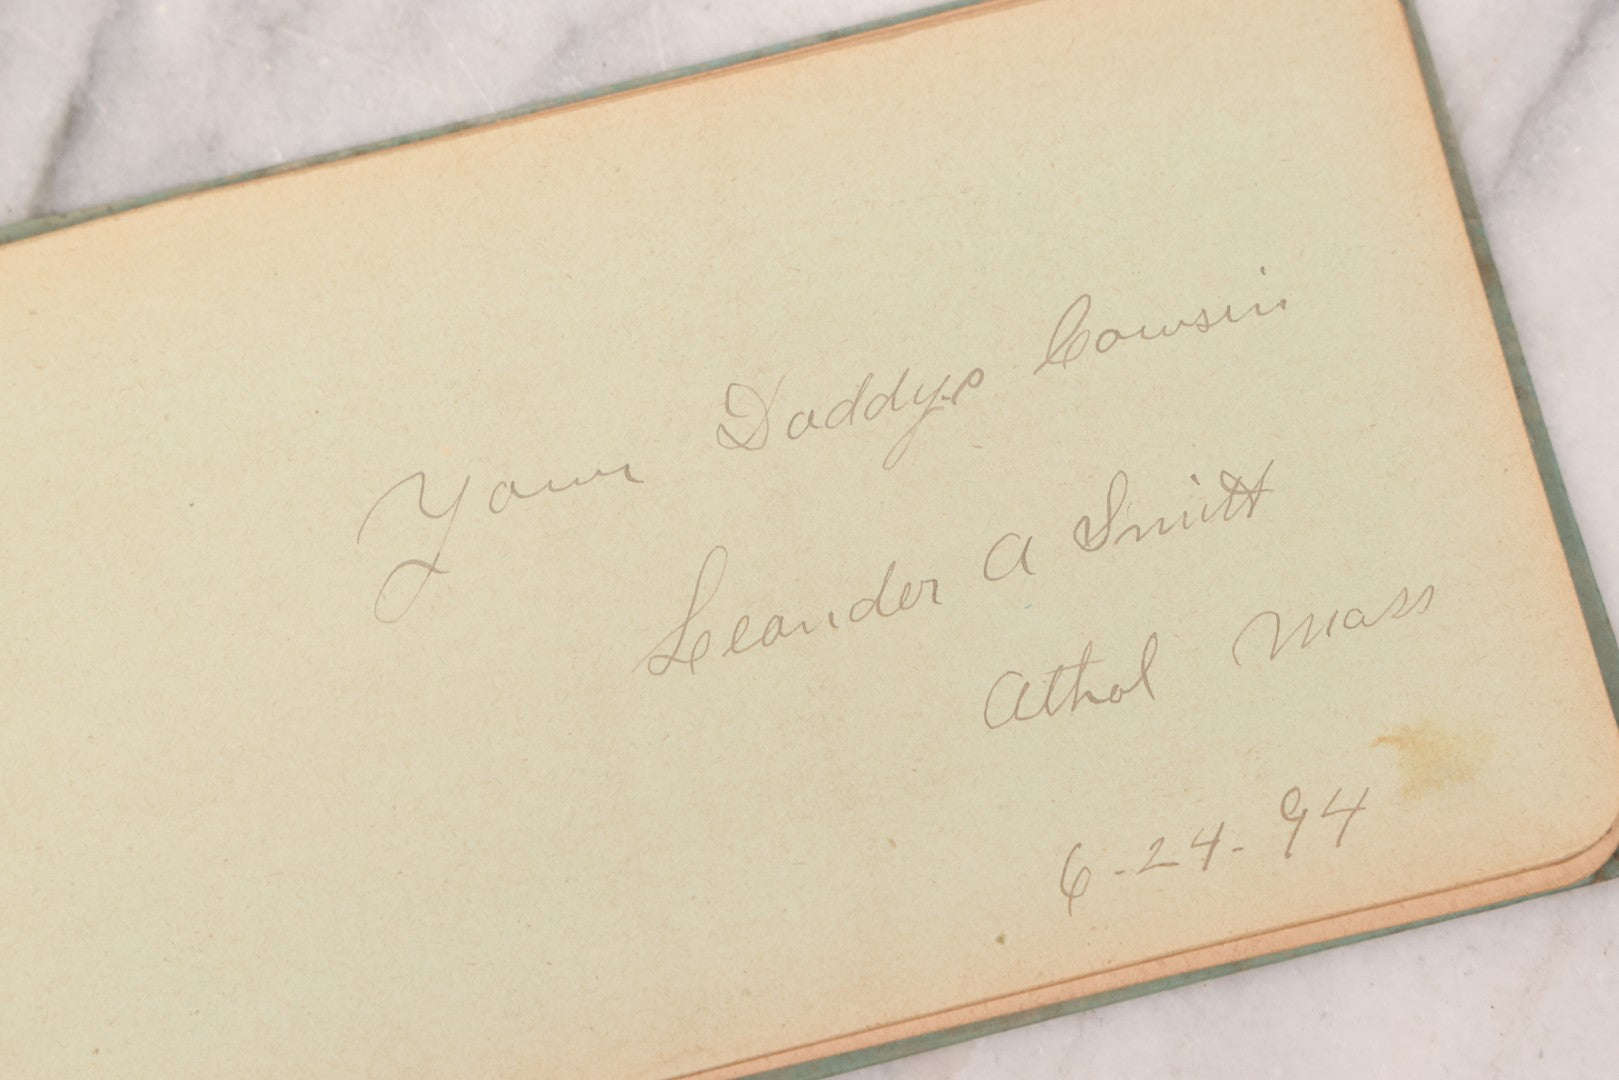 Your Daddys Cowsin
Leander A Smith
Athol Mass
6-24-94